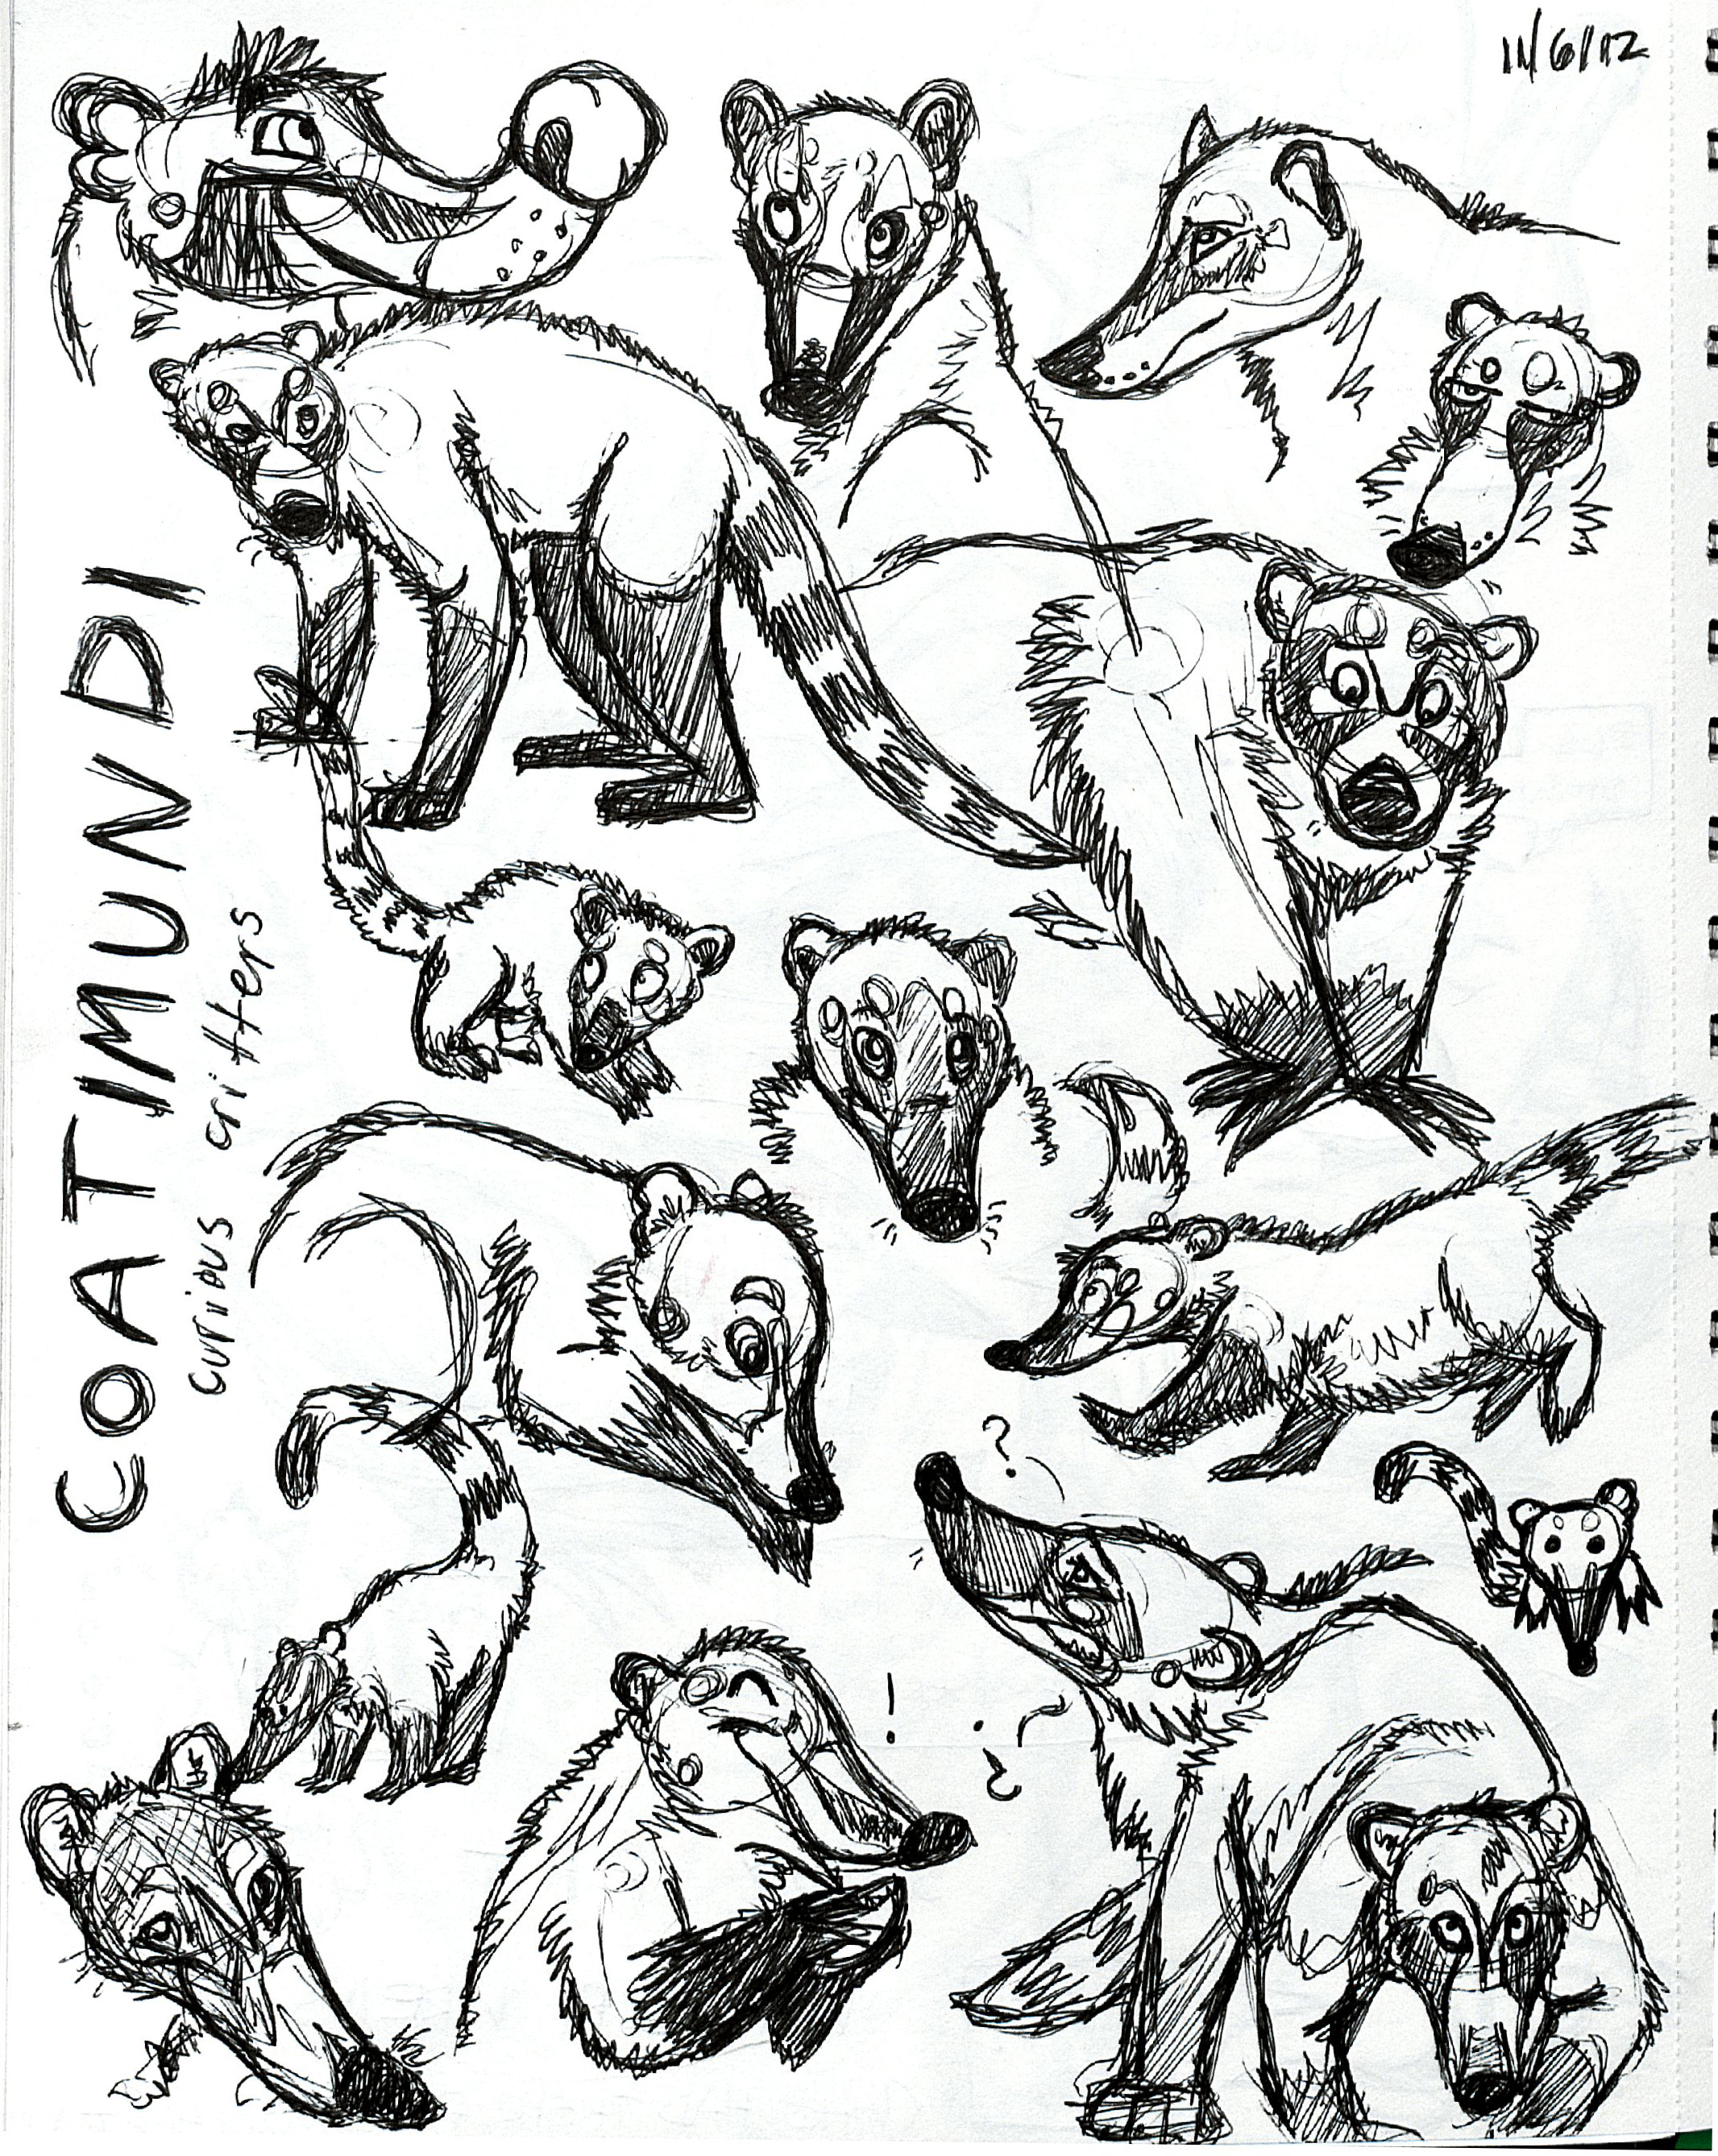 11/6/12
COATIMUNDI
curious critters
?
!
?